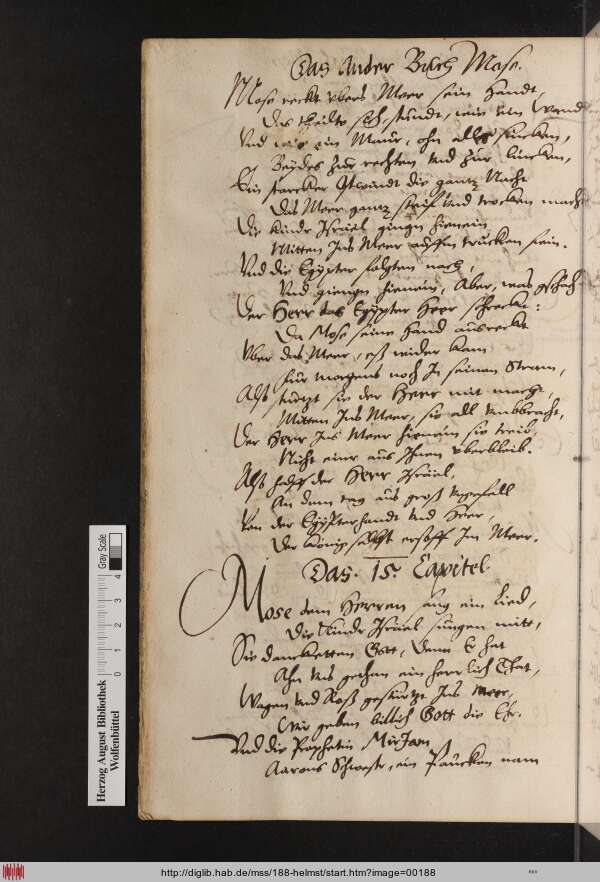 Das Ander Buch Mose.
Mose reckt vbers Meer sein Handt,
Das theilte sich, stundt, wie ein Wand
Vnd wie ein Maur, ohn alles sincken,
Beydes zur rechten vnd zur lincken,
Ein starcker Ostwindt die gantz Nacht
Das Meer gantz steif vnd trocken macht
Die kindr Israel gingn hienein
Mitten Ins Meer auffm trucken fein.
Vnd die Egypter folgten nach,
Vnd giengn hienein, Aber, was gschach
Der Herr das Egypter Heer schreckt:
Da Mose seine Hand ausreckt
Vber das Meer, es wider kam
für morgens noch In seinen Stram,
Als stürtzt sie der Herr mit macht,
Mitten Ins Meer, sie all vmbbracht,
Der Herr Ins Meer hienein sie treib,
Nicht einr aus Ihnen vberbleib.
Also halff der Herr Israel,
An dem tag aus groß vngefell
Von der Egypter handt vnd Heer,
Der König selbst ersoff Im Meer.
Das. 15. Capitel.
Mose dem Herren sang ein Lied,
Die kindr Israel sungen mitt,
Sie danckketten Gott, denn Er hat
An vns gethan ein herrlich That,
Wagen vnd Roß gestürtzt Ins Meer,
Wir geben billich Gott die Ehr.
Vnd die Prophetin MirJam
Aarons Schwestr, ein Paucken nam
Gray Scale
4 3 2 1 0
Herzog August Bibliothek
Wolfenbüttel
http://diglib.hab.de/mss/188-helmst/start.htm?image=00188